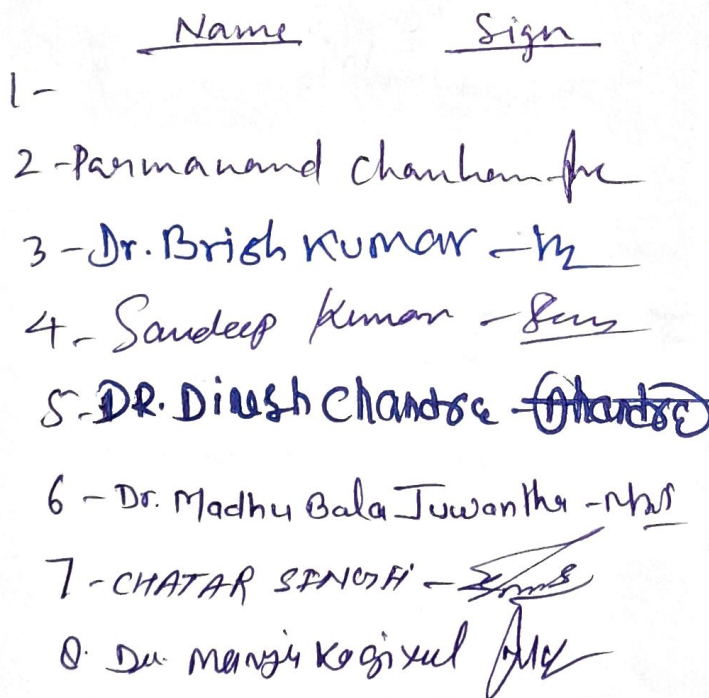 Name Sign
1-
2-Parmanand Chauhan
3-Dr. Brish Kumar -
4- Sandeep Kumar -
5-DR. Dinesh Chandra - Chandra
6 - Dr. Madhu Bala Juwantha -
7-CHATAR SINGH -
8. Dr. Manju